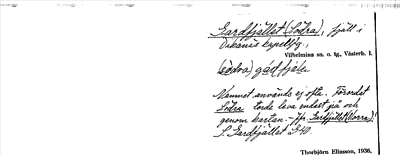 Gardfjället (Södra), fjäll i
Dikanäs kapellfg.,
Vilhelmina sn. o. tg., Västerb. l.
(södra) gáɖfjäle
Namnet användes ej ofta. Förordet
Södra torde leva endast på och
genom kartan. – Jfr Gardfjället (Norra)!
S. Gardfjället GK.
Thorbjörn Eliasson, 1936.